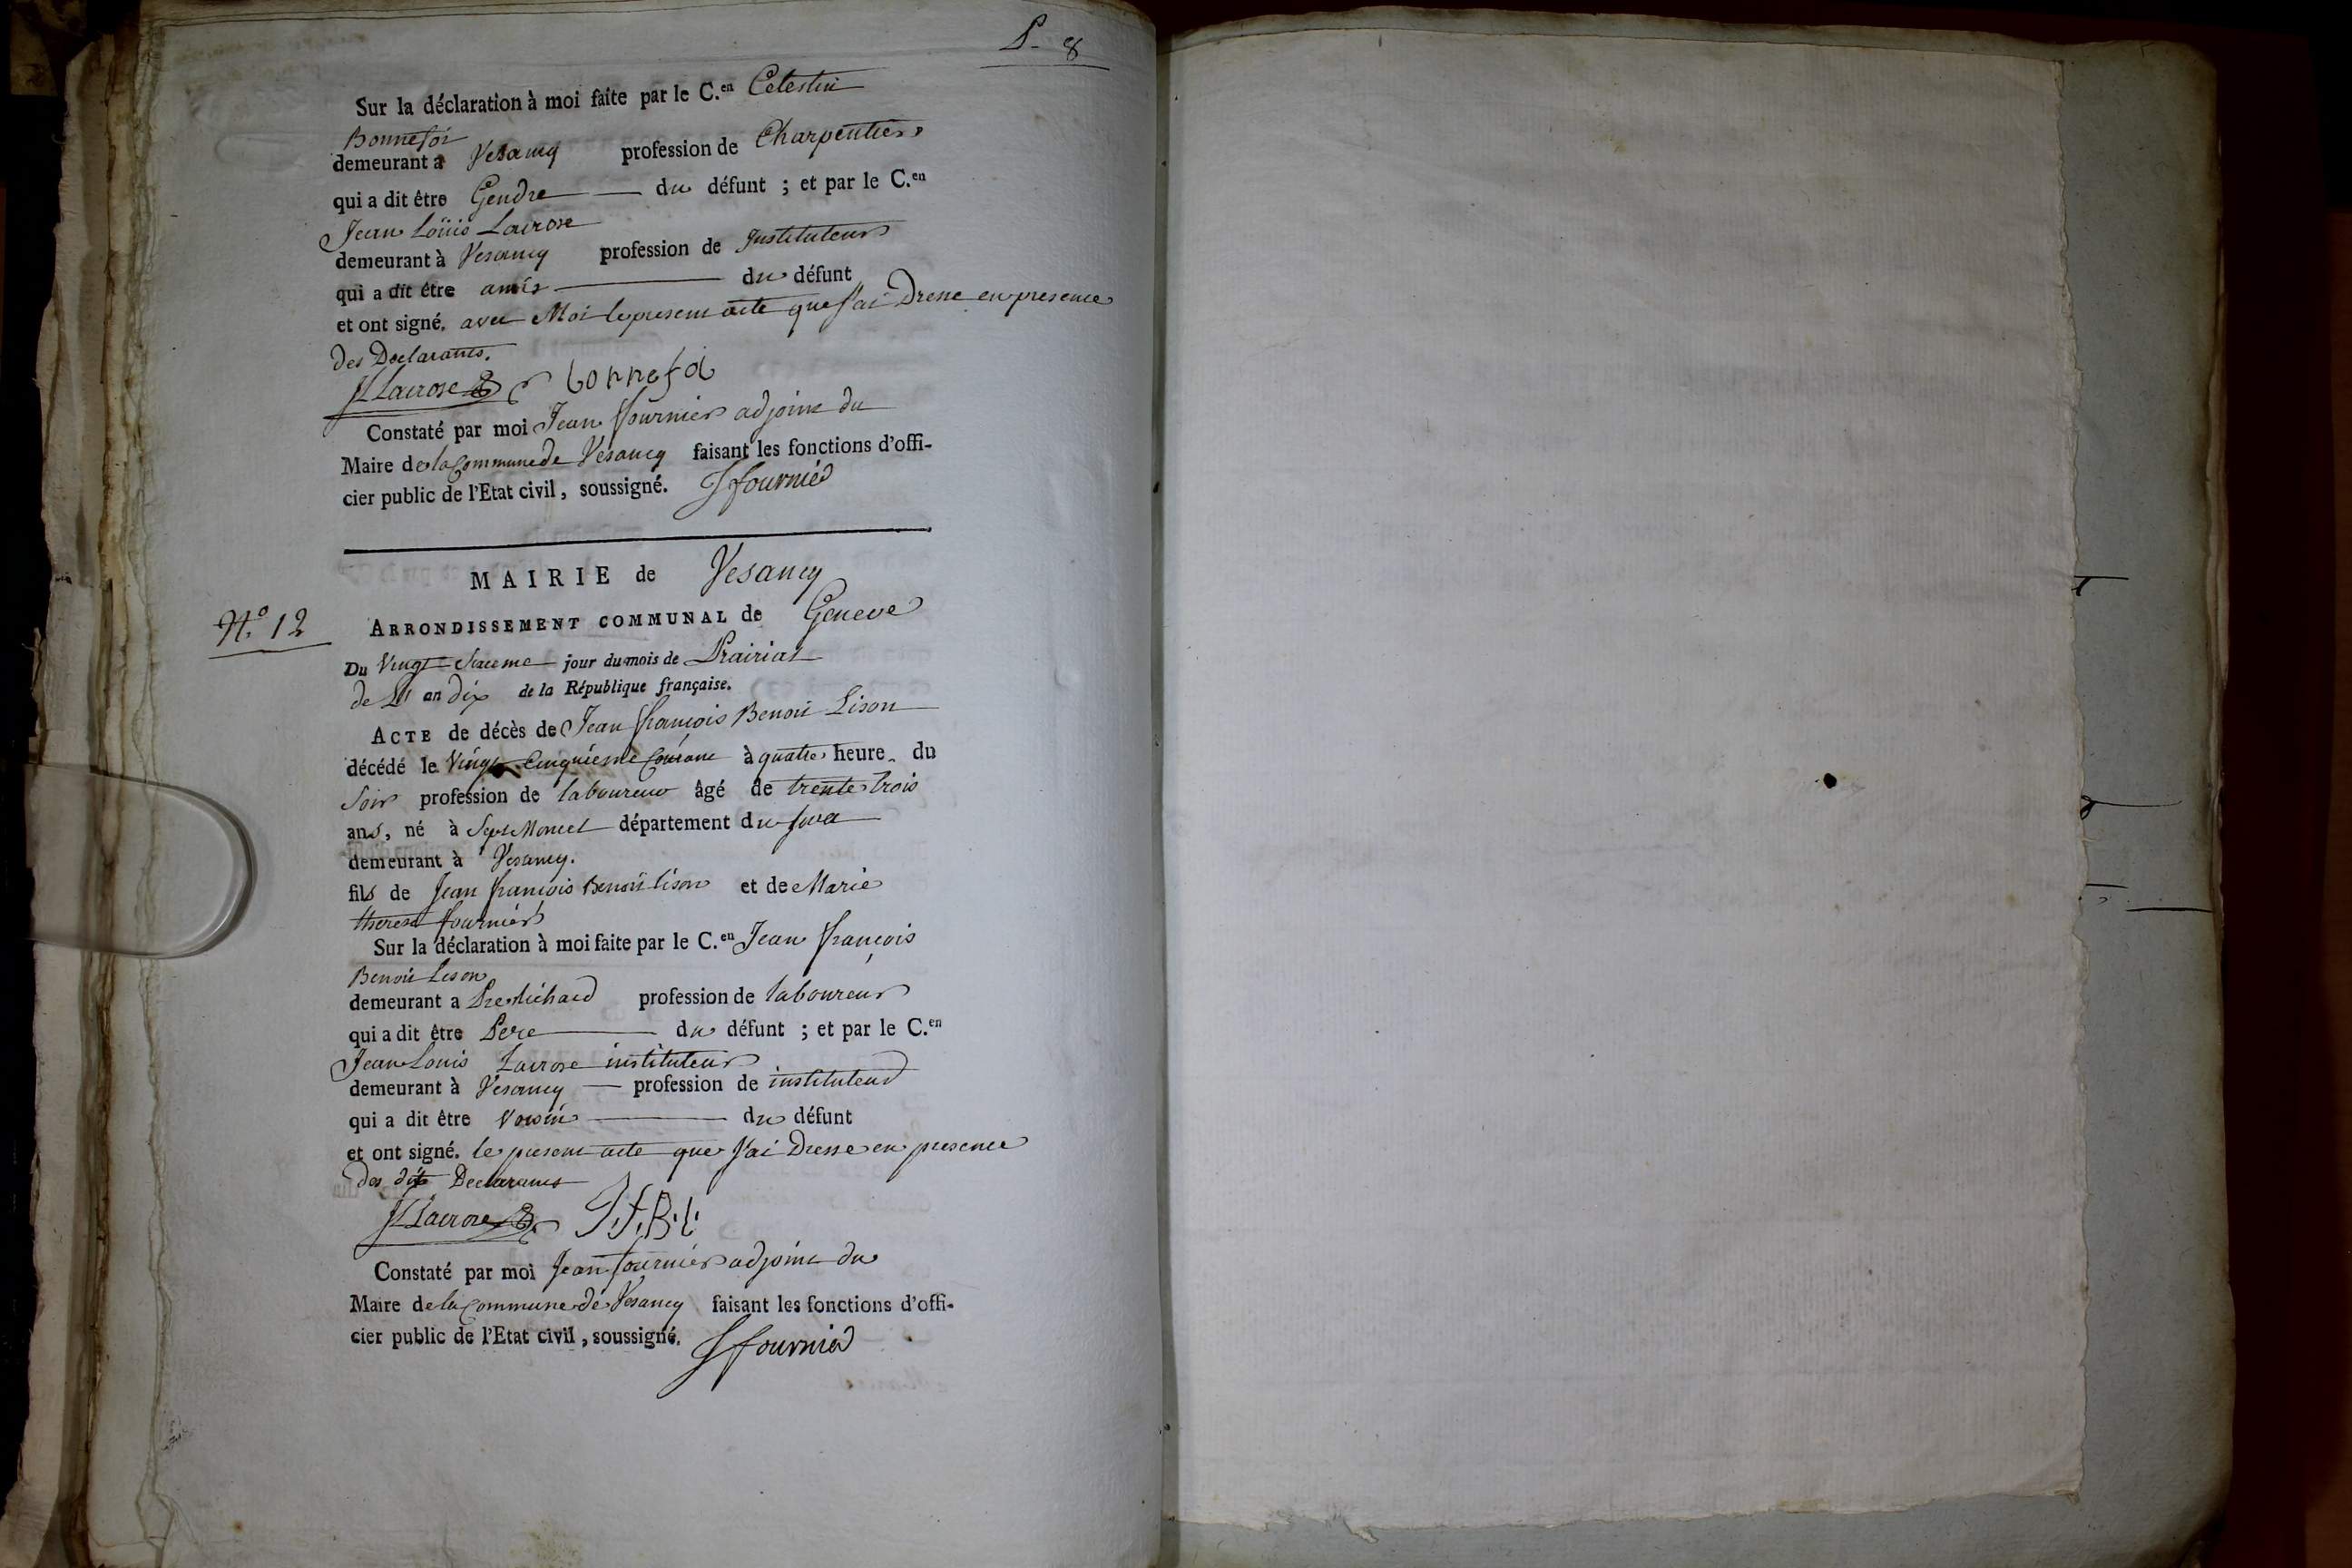 P. 8
Sur la déclaration à moi faite par le C.en Celestin
Bonnefoi
demeurant à Vesancy profession de Charpentier
qui a dit être Gendre du défunt ; et par le C.en
Jean Loüis Lacrose
demeurant à Vesancy profession de Instituteur
qui a dit être amis du défunt
et ont signé. avec Moi le present acte que J'ai Dresse en presence
des Declarants.
JLLacrose bonnefoi
Constaté par moi Jean fournier adjoint du
Maire de la Commune de Vesancy faisant les fonctions d'offi-
cier public de l'Etat civil, soussigné. Jfournier
MAIRIE de Vesancy
N.o 12
ARRONDISSEMENT COMMUNAL de Geneve
Du Vingt Sixieme jour du mois de Prairial
de L'an dix de la République française.
ACTE de décès de Jean françois Benoit Lison
décédé le Vingt Cinquiéme Courant à quatre heure du
Soir profession de laboureur âgé de trente trois
ans, né à Sept Moncel département du Jura
demeurant à Vesancy.
fils de Jean francois Benoit lison et de Marie
therese fournier
Sur la déclaration à moi faite par le C.en Jean françois
Benoit Lison
demeurant a profession de laboureur
qui a dit être Père du défunt ; et par le C.en
Jean Louis Lacrose instituteur
demeurant à Vesancy profession de instituteur
qui a dit être Voisin du défunt
et ont signé. le present acte que J'ai Dresse en presence
des dits Declarants
JLLacrose J.f.B.l.
Constaté par moi Jean fournier adjoint du
Maire de la Commune de Vesancy faisant les fonctions d'offi-
cier public de l'Etat civil, soussigné. Jfournier